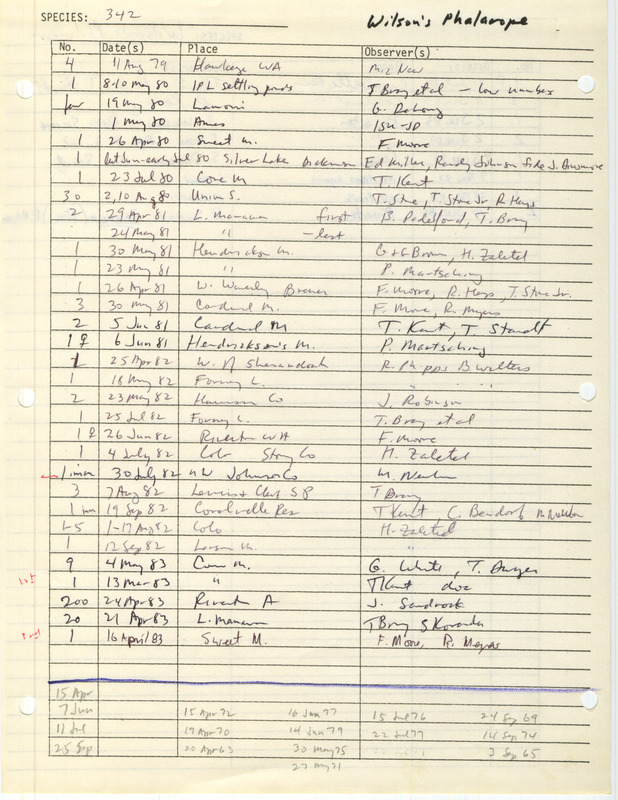 SPECIES: 342 Wilson's Phalarope
No. Date(s) Place Observer(s)
4 11 Aug 79 Hawkeye WA
1 8-10 May 80 IPL settling ponds T Bray et al - low number
few 19 May 80 Lamoni G. DeLong
1 May 80 Ames ISU-JD
1 26 Apr 80 Sweet M. F. Moore
1 lat Jun-early Jul 80 Silver Lake Dickinson Ed Miller, Randy Johnson fide J. Dinsmore
1 23 Jul 80 Cone M T. Kent
30 2, 10 Aug 80 Union S. T. Stone, T. Stone Jr. R Hays
2 29 Apr 81 L. Manawa first B. Padelford, T. Bray
24 May 81 " -last
1 30 May 81 Hendrickson M. G & G Brown, H. Zaletel
1 23 May 81 " P. Martsching
1 26 Apr 81 W. Waverly Bremer F. Moore, R. Hays, T. Stone Jr.
3 30 May 81 Cardinal M. F. Moore, R. Myers
2 5 Jun 81 Cardinal M T. Kent, T Staudt
1♀ 6 Jun 81 Hendrickson's M. P. Martsching
1 25 Apr 82 W. of Shenandoah R. Phipps B. Walters
1 18 May 82 Forney L. " "
2 23 May 82 Harrison Co J. Robinson
1 25 Jul 82 Forney L. T. Bray et al
1♀ 26 Jun 82 Riverton WA F. Moore
1 4 July 82 Colo Story Co H. Zaletel
1 imm 30 July 82 NW Johnson Co M. Newlon
3 7 Aug 82 Lewis & Clark SP T Bray
1 im 19 Sep 82 Coralville Res T Kent, C. Bendorf M Newlon
1-5 1-17 Aug 82 Colo H. Zaletel
1 12 Sep 82 Larson M. "
9 4 May 83 Cone M. G. White, T.
1 13 Mar 83 " T Kent doc
200 24 Apr 83 Riverton A J. Sandrock
20 21 Apr 83 L. Manawa T Bray S Kovanda
1 16 April 83 Sweet M. F. Moore, R. Meyers
15 Apr
7 Jun 15 Apr 72 16 Jun 77 15 Jul 76 24 Sep 69
11 Jul 19 Apr 70 14 Jun 79 22 Jul 77 14 Sep 74
25 Sep 20 Apr 63 30 May 75 3 Sep 65
27 May 71